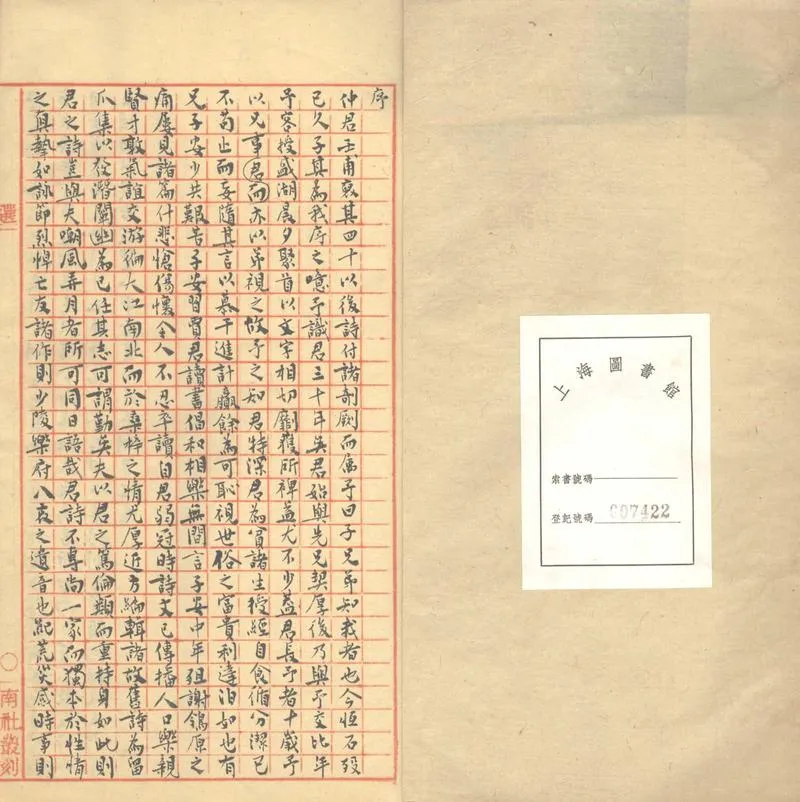 上海圖書館
索書號碼
登記號碼
序
仲君壬甫裒其四十以後詩付諸剞劂而属予曰子兄弟知我者也今恆石歿
已久子其為我序之噫予識君三十年矣君始與先兄契厚後乃與予交比年
予客授盛湖晨夕聚首以文字相切劘獲所裨益尤不少蓋君長予者十歲予
以兄事君而亦以弟視之故予之知君特深君為貧諸生授經自食循分潔己
不苟止而妄隨其言以慕干進計贏餘為可恥視世俗之富貴利達泊如也有
兄子安少共艱苦子安習賈君讀書倡和相樂無間言子安中年殂謝鴒原之
痛屢見諸篇什悲愴傷懷令人不忍卒讀自君弱冠時詩文已傳播人口樂親
賢才敦氣誼交游徧大江南北而於桑梓之情尤厚近方編輯諸故舊詩為留
爪集以發潛闡幽為己任其志可謂勤矣夫以君之篤倫類而重持身如此則
君之詩豈與夫嘲風弄月者所可同日語哉君詩不專尚一家而獨本於性情
之真摯如詠節烈悼亡友諸作則少陵樂府八哀之遺音也紀荒災感時事則
選
南社叢刻